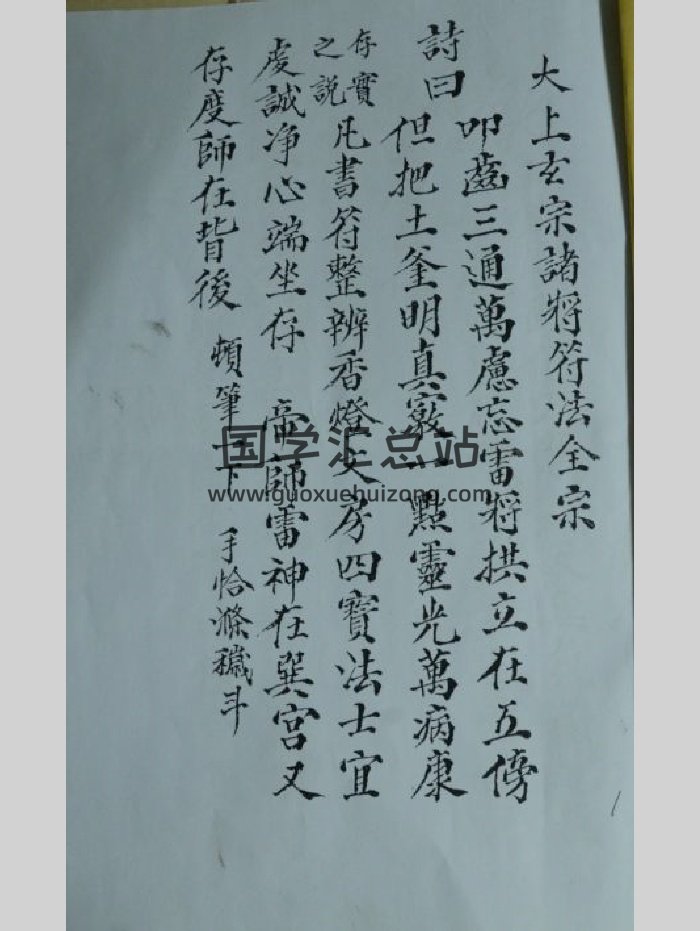 大上玄宗諸將符法全宗
詩曰
叩齒三通萬慮忘雷將拱立在五傍
但把土釜明真竅一點靈光萬病康
存實之説
凡書符整辨香燈文房四寶法士宜
虔誠净心端坐存 帝師雷神在巽宮又
存度師在背後 頓筆一下 手恰滌穢斗
国学汇总站
www.guoxuehuizong.com